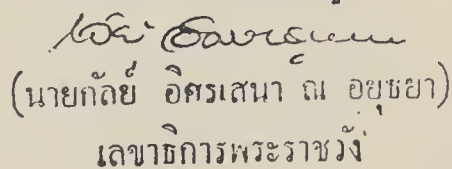 (นายกัลย์ อิศรเสนา ณ อยุธยา)
เลขาธิการพระราชวัง